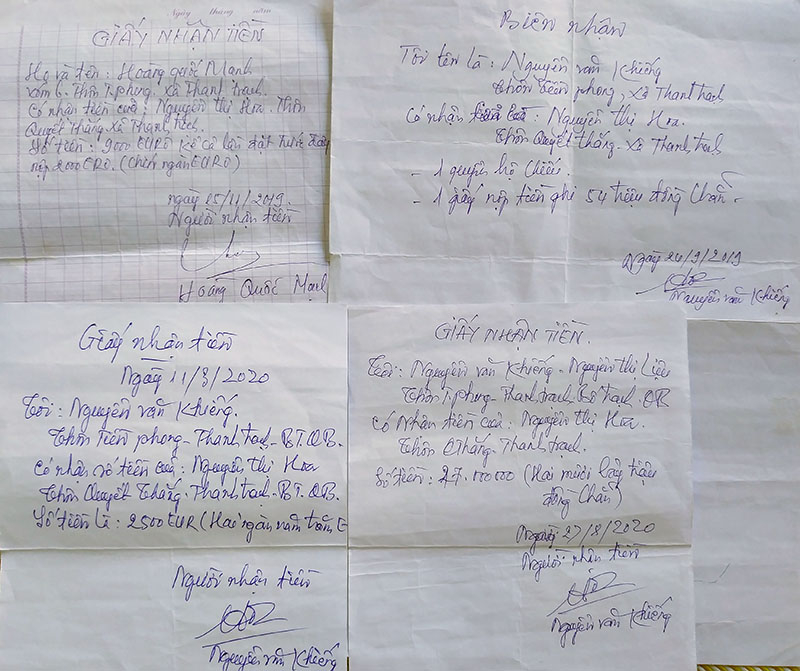 Ngày tháng năm
GIẤY NHẬN TIỀN
Họ và tên: Hoàng Quốc Mạnh
xóm 6. Thôn T.phong. xã Thanh trạch
Có nhận tiền của: Nguyễn thị Hoa. Thôn
Quyết thắng. xã Thanh trạch.
Số tiền: 9000 EURO kể cả lần đặt trước đây
nộp 2000 ERO. (Chín ngàn EURO)
ngày 15/11/2019.
Người nhận tiền
Hoàng Quốc Mạnh
Biên nhận
Tôi tên là: Nguyễn văn Khiếng
thôn tiền phong, xã Thanh trạch
Có nhận của: Nguyễn thị Hoa.
thôn Quyết thắng. xã Thanh trạch
- 1 quyển hộ chiếu.
- 1 giấy nộp tiền ghi 54 triệu đồng chẵn.
Ngày 24/9/2019
Nguyễn văn Khiếng
Giấy nhận tiền
Ngày 11/3/2020
Tôi: Nguyễn văn Khiếng.
thôn tiền phong - Thanh trạch - BT. QB.
có nhận số tiền của: Nguyễn thị Hoa
thôn Quyết thắng. Thanh trạch - BT. QB.
Số tiền là: 2500 EUR (Hai ngàn năm trăm E
Người nhận tiền
Nguyễn văn Khiếng
GIẤY NHẬN TIỀN.
Tôi: Nguyễn văn Khiếng. Nguyễn thị Liệu
thôn T.phong - Thanh trạch Bố trạch. QB
Có nhận tiền của: Nguyễn thị Hoa.
thôn Q thắng. Thanh trạch.
Số tiền: 27.000000 (Hai mươi bảy triệu
đồng chẵn)
Ngày 27/8/2020
Người nhận tiền
Nguyễn văn Khiếng